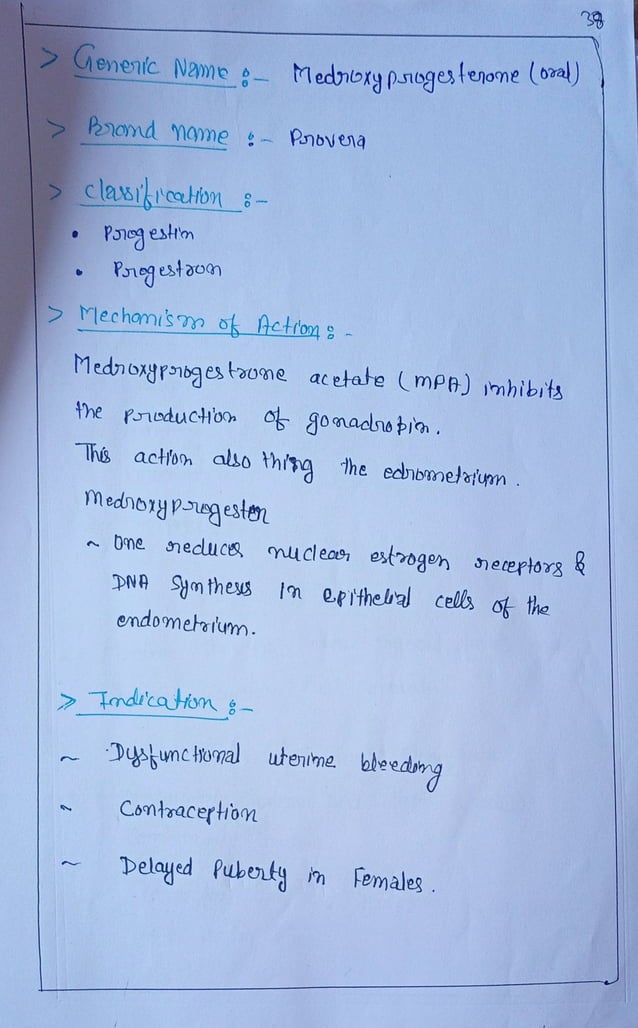 38
> Generic Name :- Medroxyprogesterone (oral)
> Brand name :- Provera
> Classification :-
• Progestin
• Progestron
> Mechanism of Action :-
Medroxyprogestrone acetate (MPA) inhibits
the production of gonadropin.
This action also thing the edrometrium.
Medroxyprogester
~ One reduces nuclear estrogen receptors &
DNA Synthesis in epithelial cells of the
endometrium.
> Indication :-
~ Dysfunctional uterine bleeding
~ Contraception
~ Delayed Puberty in Females.